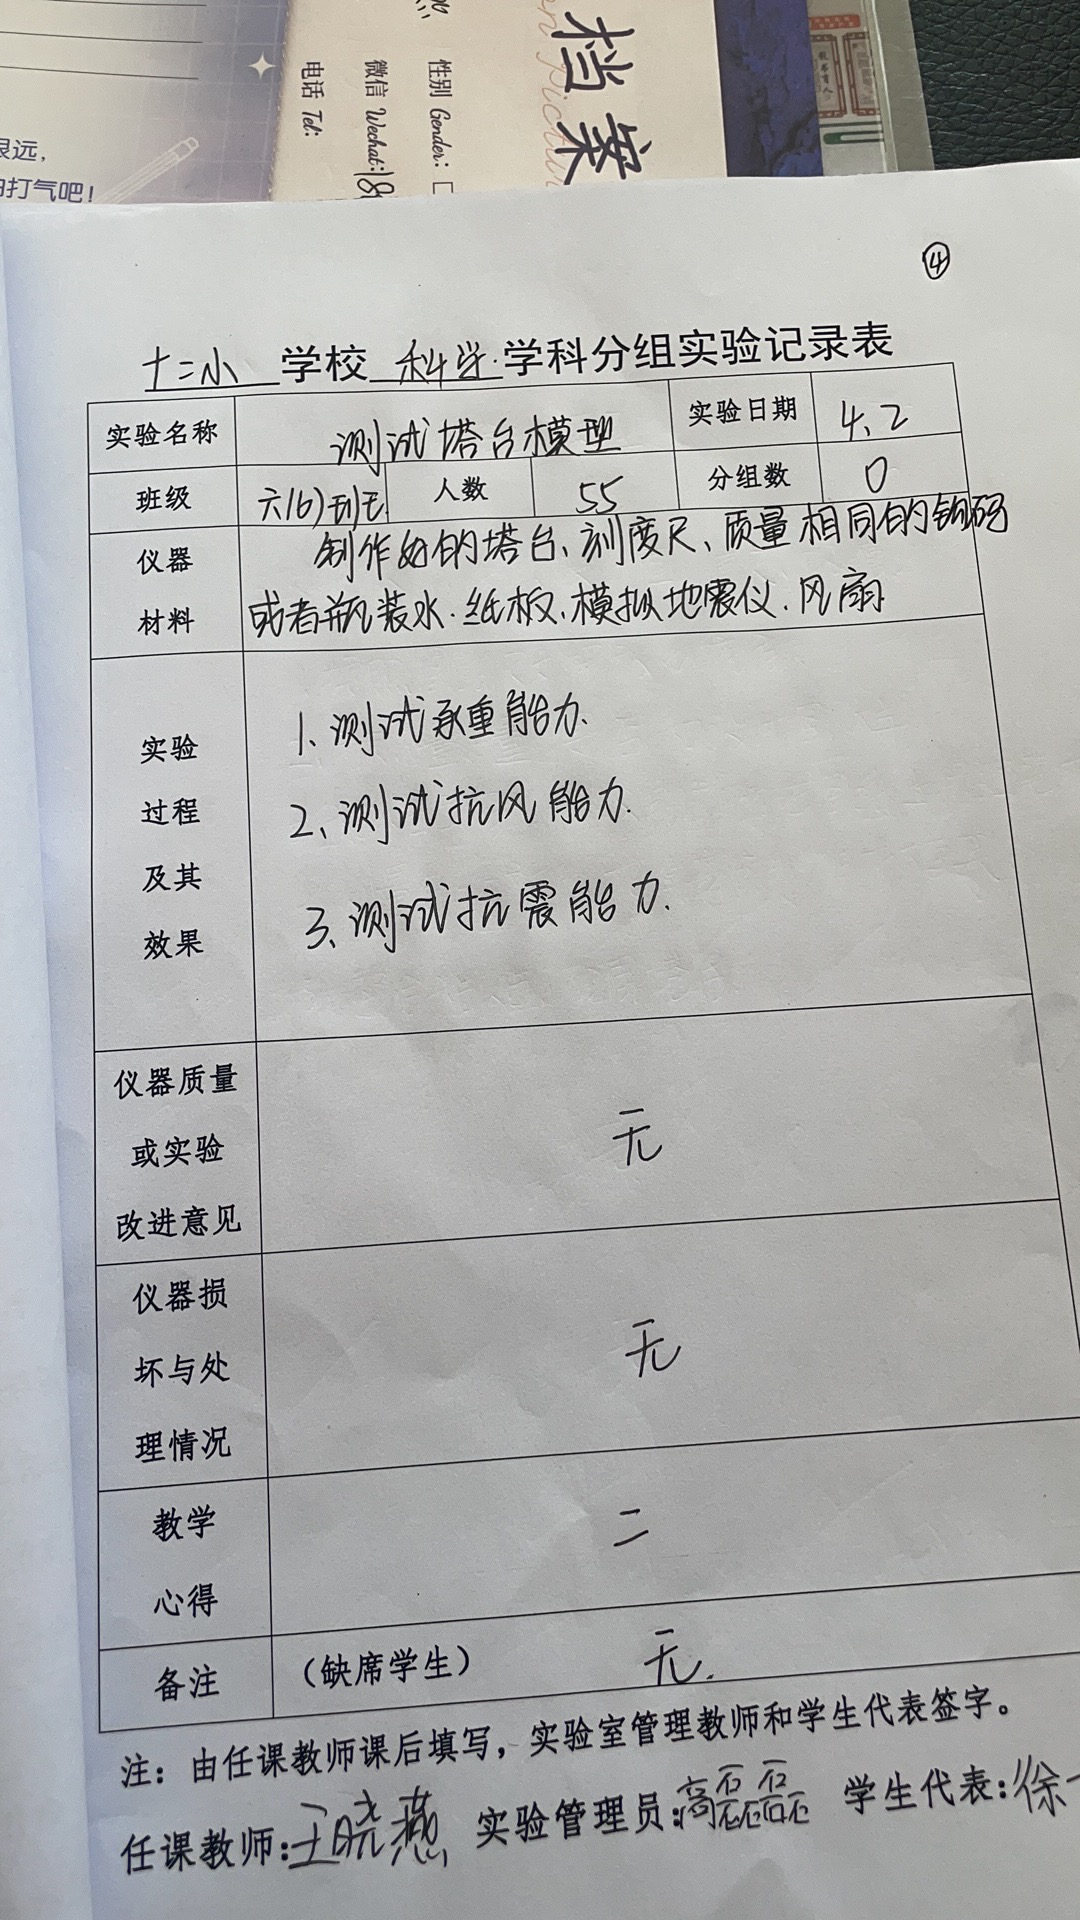 很远,
打气吧!
电话 Tel:
微信 Wechat: 18
性别 Gender: □
档案
④
十二小 学校 科学 学科分组实验记录表
实验名称 测试塔台模型 实验日期 4.2
班级 六(6)班 人数 55 分组数 0
仪器材料 制作好的塔台、刻度尺、质量相同的钩码
或者瓶装水、纸板、模拟地震仪、风扇
实验
过程
及其
效果
1、测试承重能力.
2、测试抗风能力.
3、测试抗震能力.
仪器质量
或实验
改进意见
无
仪器损
坏与处
理情况
无
教学
心得
二
备注 (缺席学生) 无.
注：由任课教师课后填写，实验室管理教师和学生代表签字。
任课教师:王晓燕 实验管理员:高磊磊 学生代表:徐